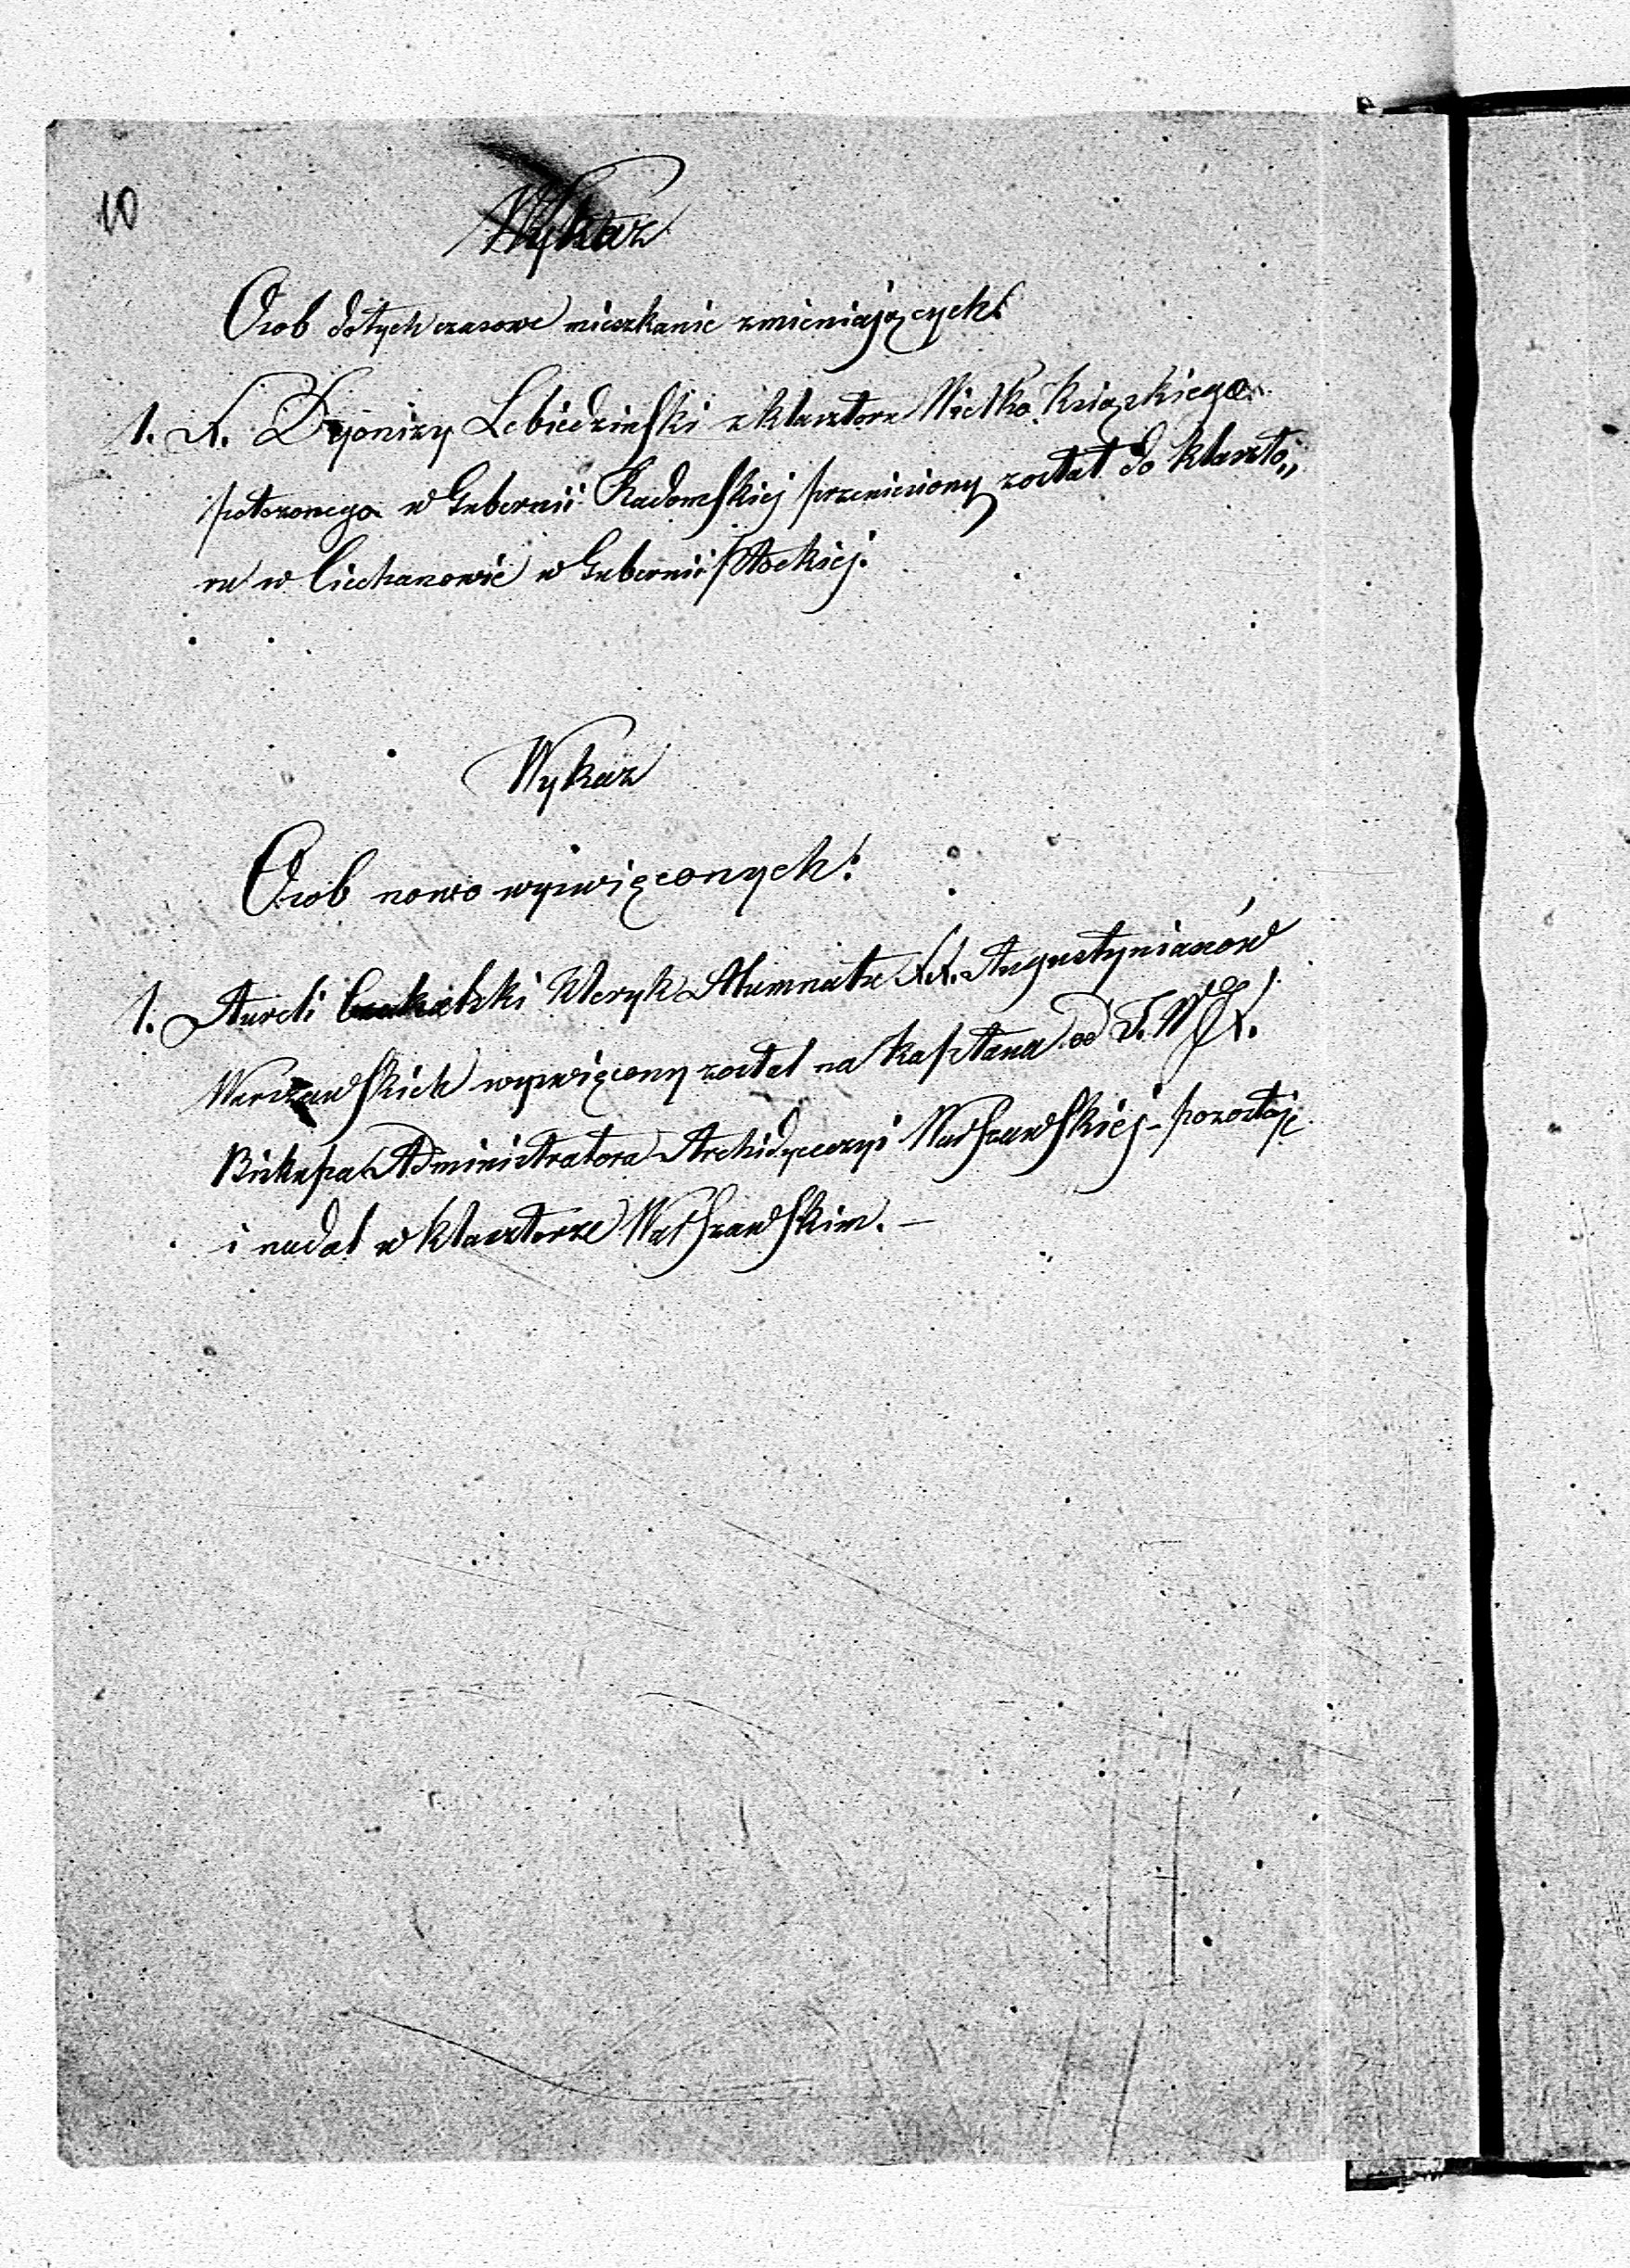 10
Wykaz
Osob dotychczasowe mieszkanie zmieniających:
1. X. Dyonizy Lebiedziński z klasztoru Wielko Książkiego
położonego w Gubernii Radomskiej przeniesiony został do klaszto„
ru w Ciechanowie w Gubernii Płockiej.
Wykaz
Osob nowo wyświęconych:
1. Aureli Kleryk Alumnatu XX. Augustynianów
Warszawskich wyświęcony został na kapłana od J. W. X.
Biskupa Administratora Archidyecezyi Warszawskiej – pozostaje
i nadal w klasztorze Warszawskim. —